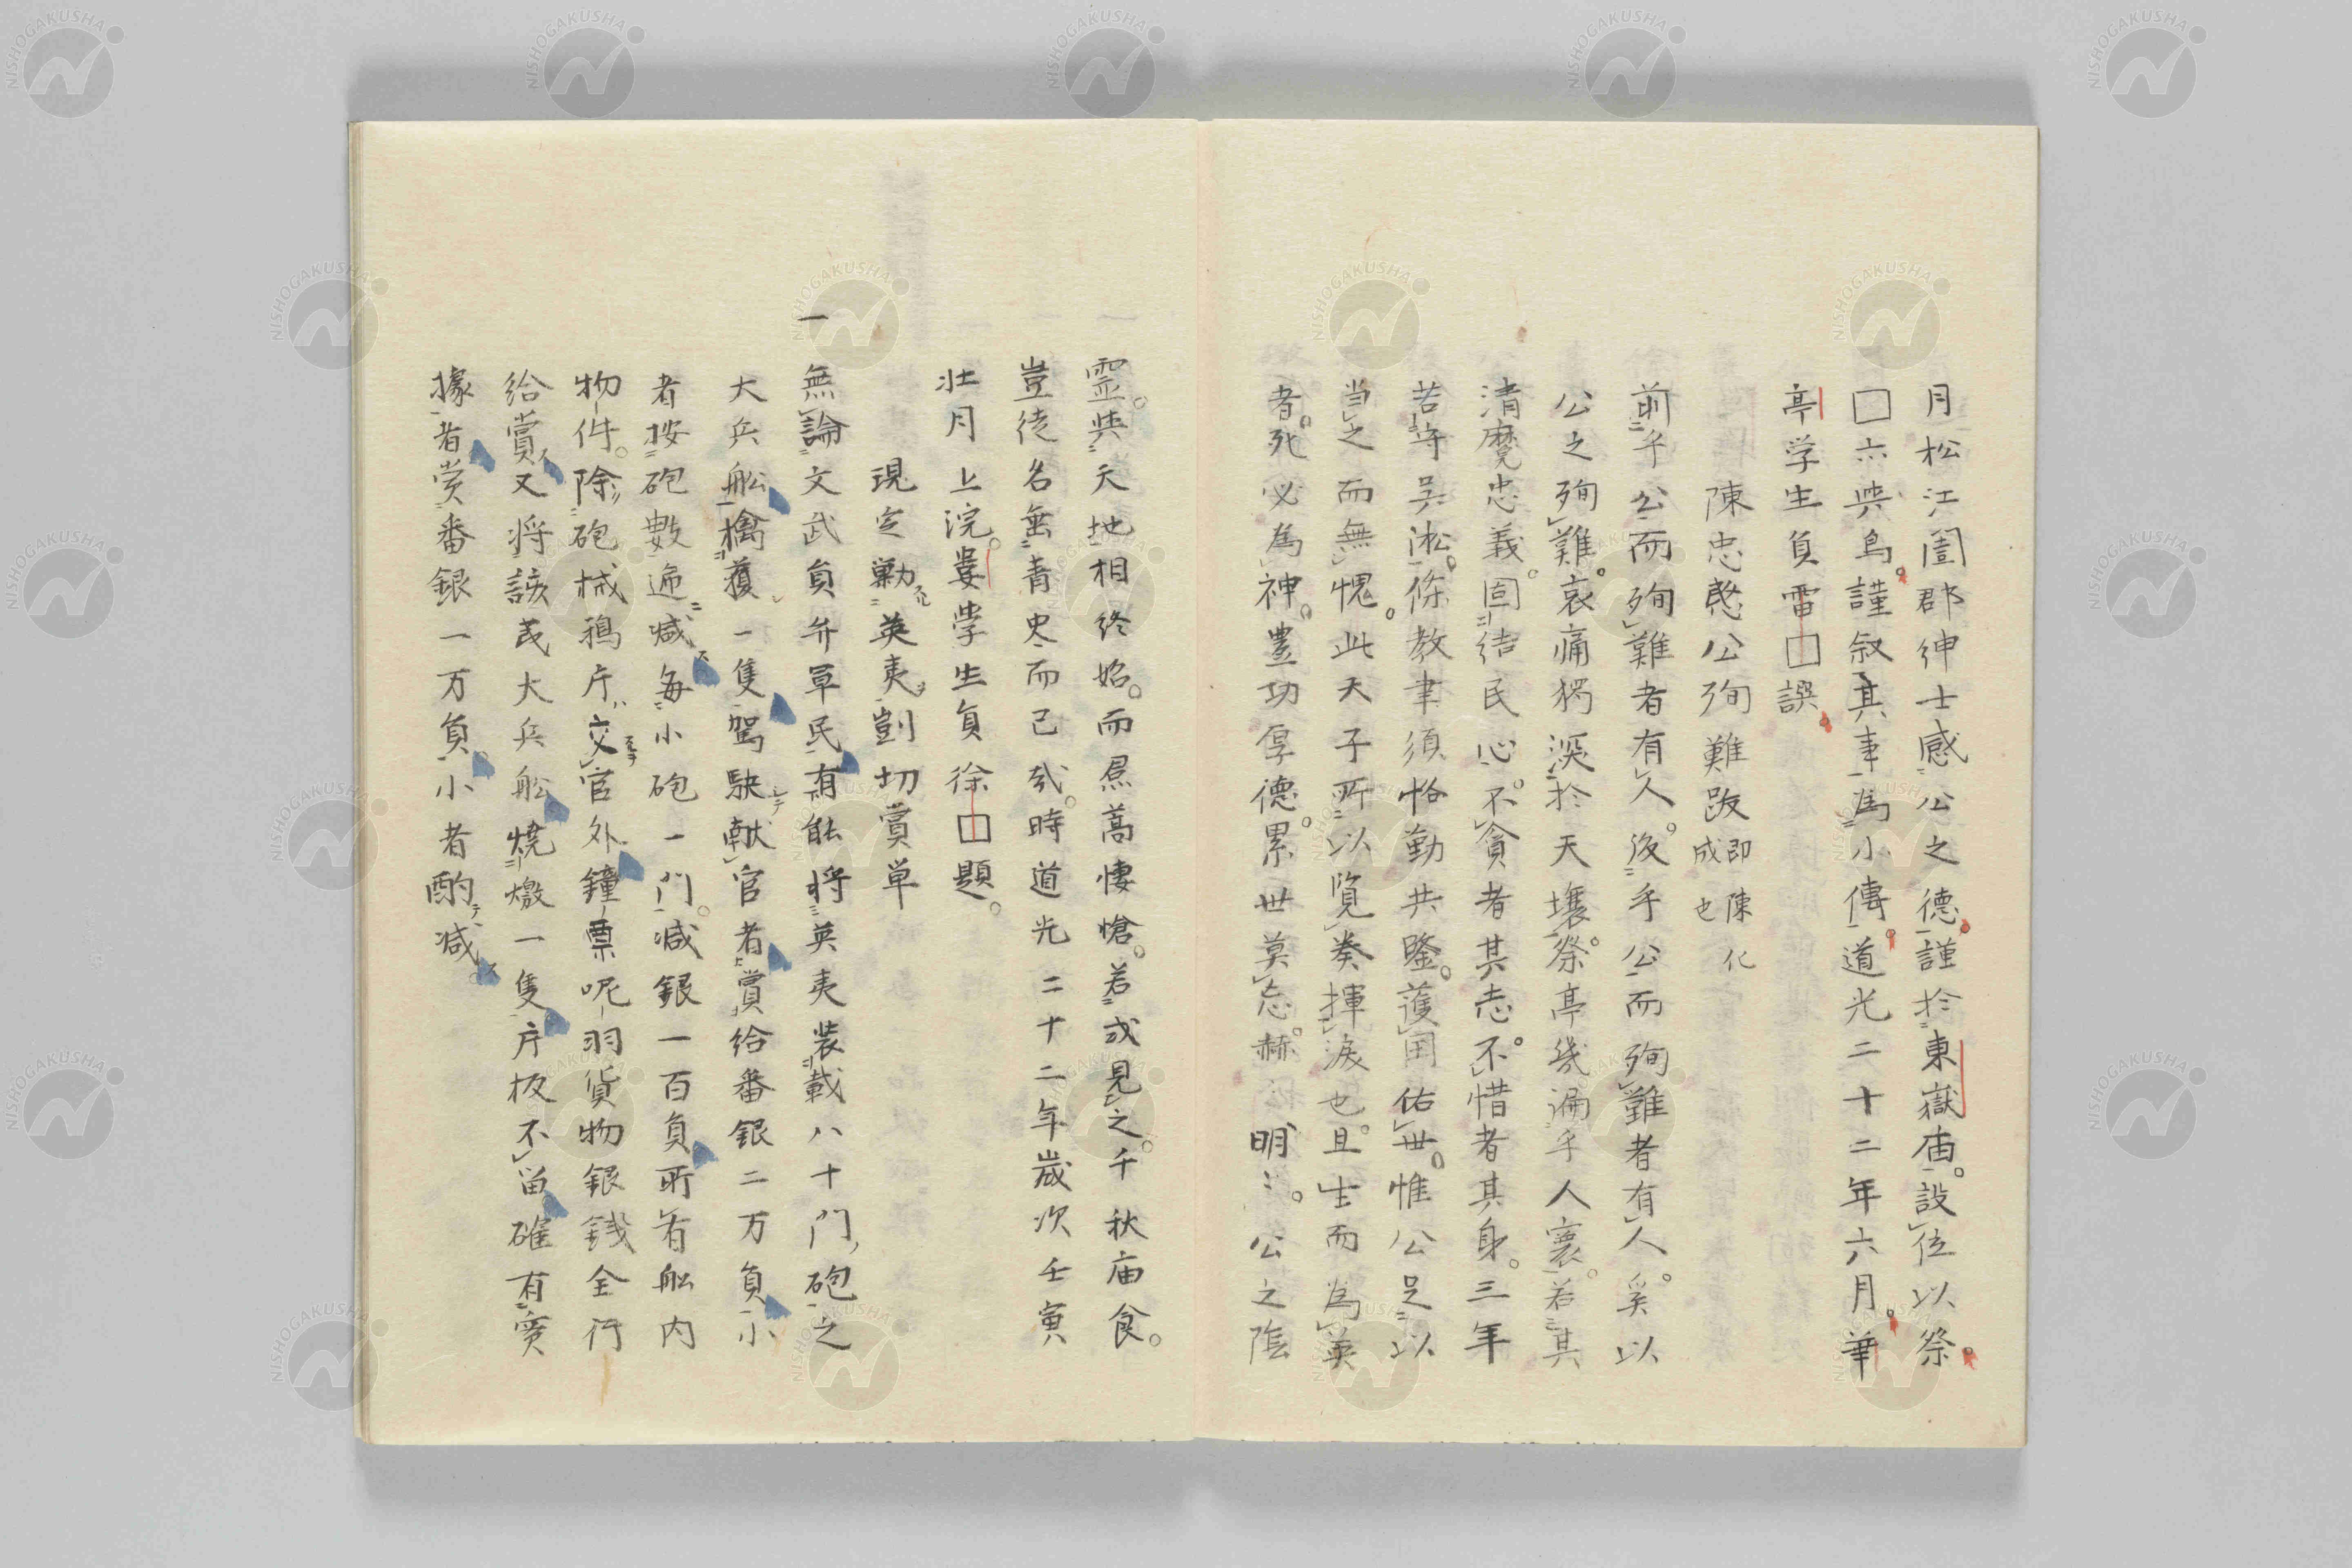 月松江闔郡紳士感公之德謹於東嶽庙設位以祭
□亦與烏謹叙其事為小傳道光二十二年六月華
亭学生員雷□譔
陳忠愍公殉難跋即陳化成也
前乎公而殉難者有人後乎公而殉難者有人奚以
公之殉難哀痛獨深於天壤祭亭幾遍乎人寰若其
清廉忠義固結民心不貪者其志不惜者其身三年
苦守吴淞條教聿須恪勤共鑒護国佑世惟公足以
当之而無愧此天子所以覧奏揮淚也且生而為英
者死必為神豊功厚德累世莫忘赫〻明〻公之陰
霊與天地相終始而焄蒿悽愴若或見之千秋庙食
豈徒名垂青史而已哉時道光二十二年歳次壬寅
壮月上浣婁学生員徐□題
現定勦英夷剴切賞単
一無論文武員弁軍民有能将英夷装載八十門砲之
大兵舩擒獲一隻駕駛献官者賞給番銀二万員小
者按砲數遞减毎小砲一門减銀一百員所有舩内
物件除砲械鴉片交官外鐘票呢羽貨物銀銭全行
給賞又将該夷大兵舩焼燬一隻片板不留確有実
據者赏番銀一万員小者酌减
NISHOGAKUSHA